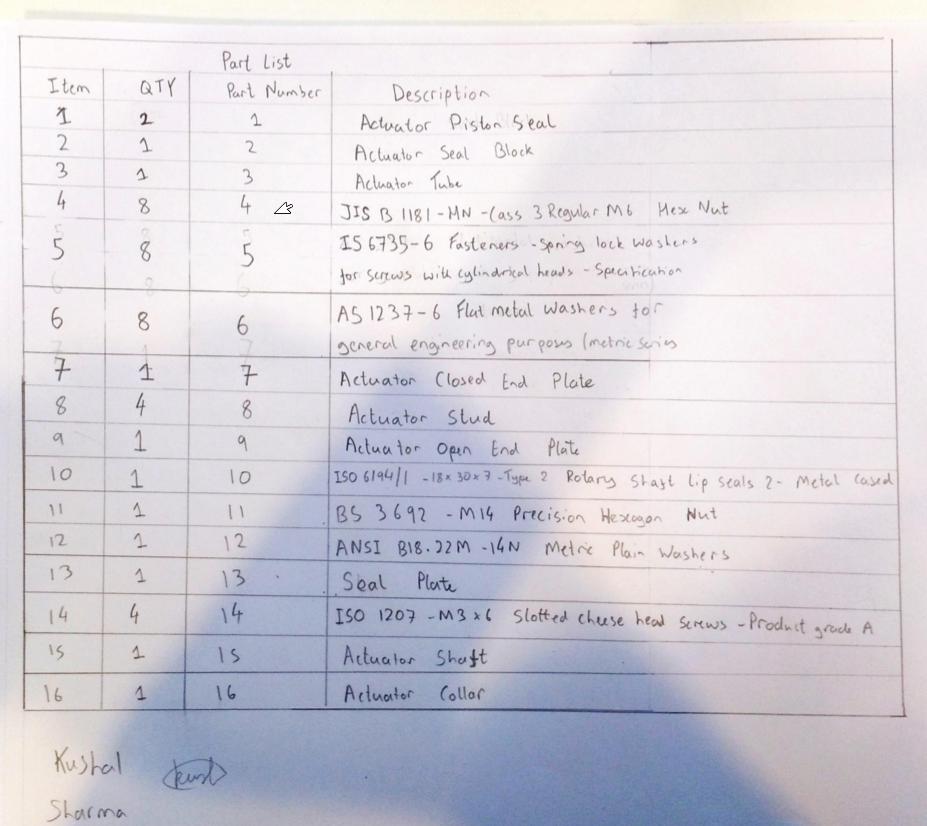 Part List
Item QTY Part Number Description
1 2 1 Actuator Piston Seal
2 1 2 Actuator Seal Block
3 1 3 Actuator Tube
4 8 4 JIS B 1181 - HN - Class 3 Regular M6 Hex Nut
5 8 5 IS 6735-6 Fasteners - Spring lock washers
for screws with cylindrical heads - Specification
6 8 6 AS 1237-6 Flat metal washers for
general engineering purposes (metric series
7 1 7 Actuator Closed End Plate
8 4 8 Actuator Stud
9 1 9 Actuator Open End Plate
10 1 10 ISO 6194/1 - 18x30x7 - Type 2 Rotary Shaft Lip Seals 2 - Metal Cased
11 1 11 BS 3692 - M14 Precision Hexagon Nut
12 1 12 ANSI B18.22M - 14N Metric Plain Washers
13 1 13 Seal Plate
14 4 14 ISO 1207 - M3x6 Slotted cheese head screws - Product grade A
15 1 15 Actuator Shaft
16 1 16 Actuator Collar
Kushal
Sharma